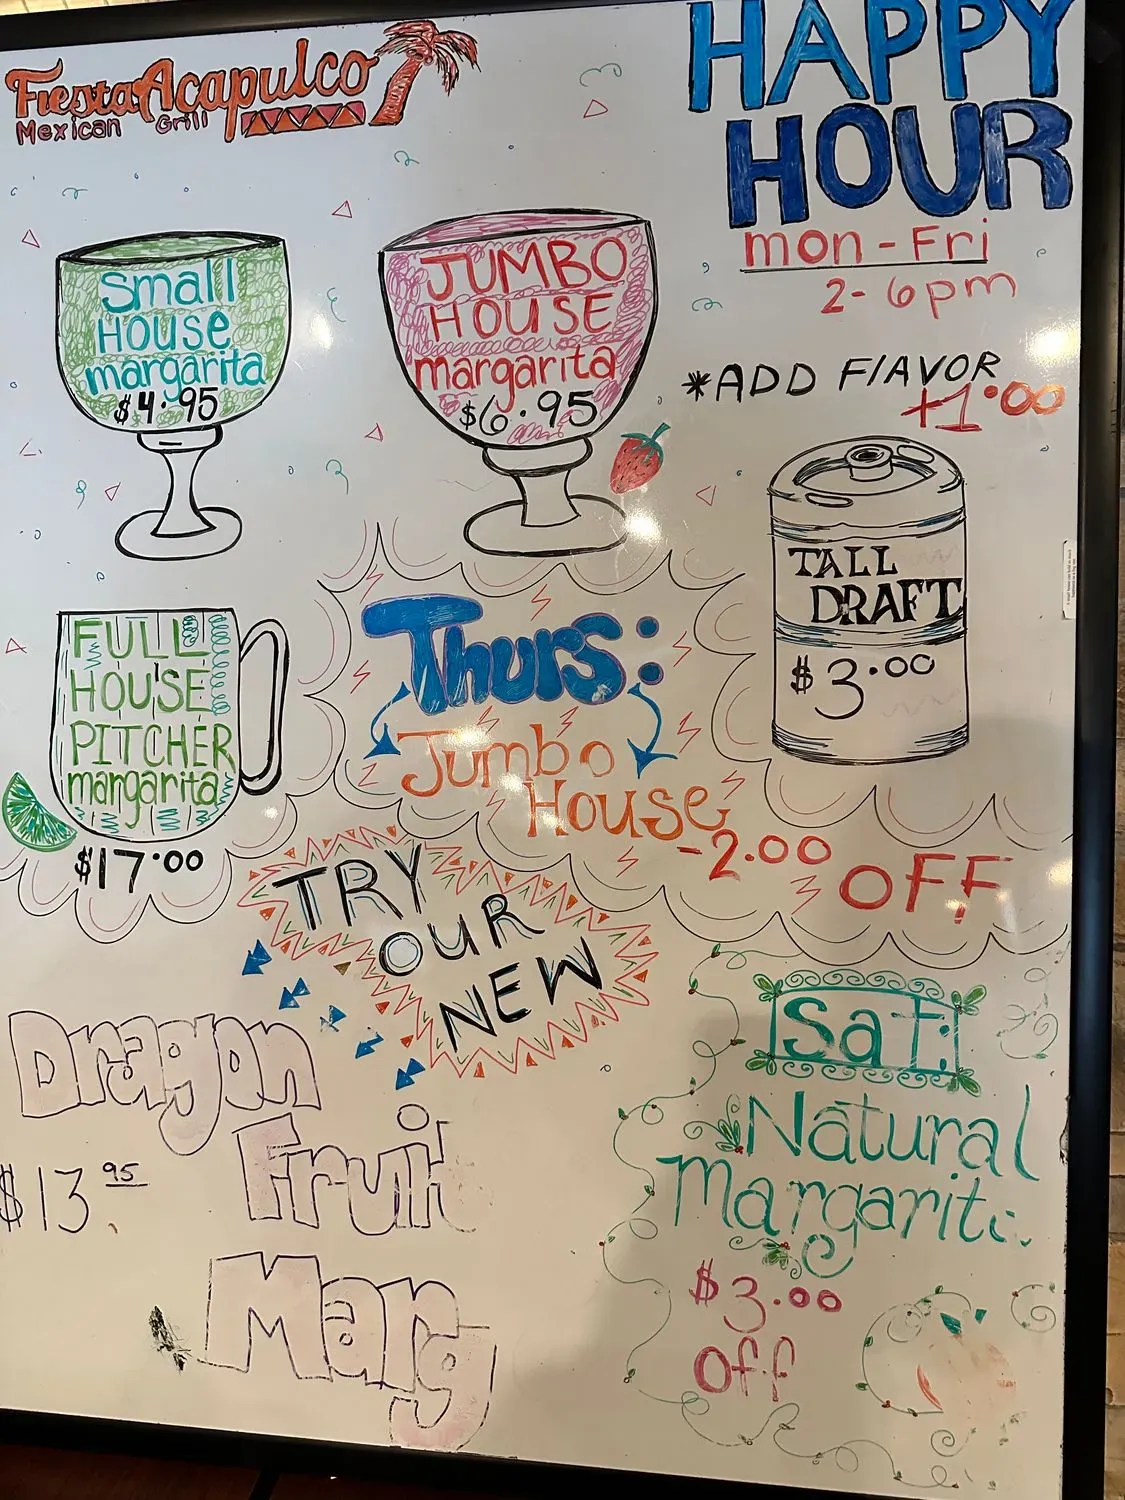 Fiesta Acapulco
Mexican Grill
HAPPY
HOUR
mon-Fri
2-6pm
Small
House
margarita
$4.95
JUMBO
HOUSE
margarita
$6.95
*ADD FlAVOR
+1.00
TALL
DRAFT
$3.00
FULL
HOUSE
PITCHER
margarita
$17.00
Thurs:
Jumbo
House
-2.00 OFF
TRY
OUR
NEW
Dragon
Fruit
Marg
$13.95
Sat:
Natural
Margarita
$3.00
Off